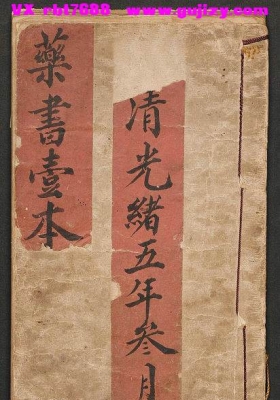 VX rbt7688 www.gujizy.com
藥書壹本
清光緒五年叁月